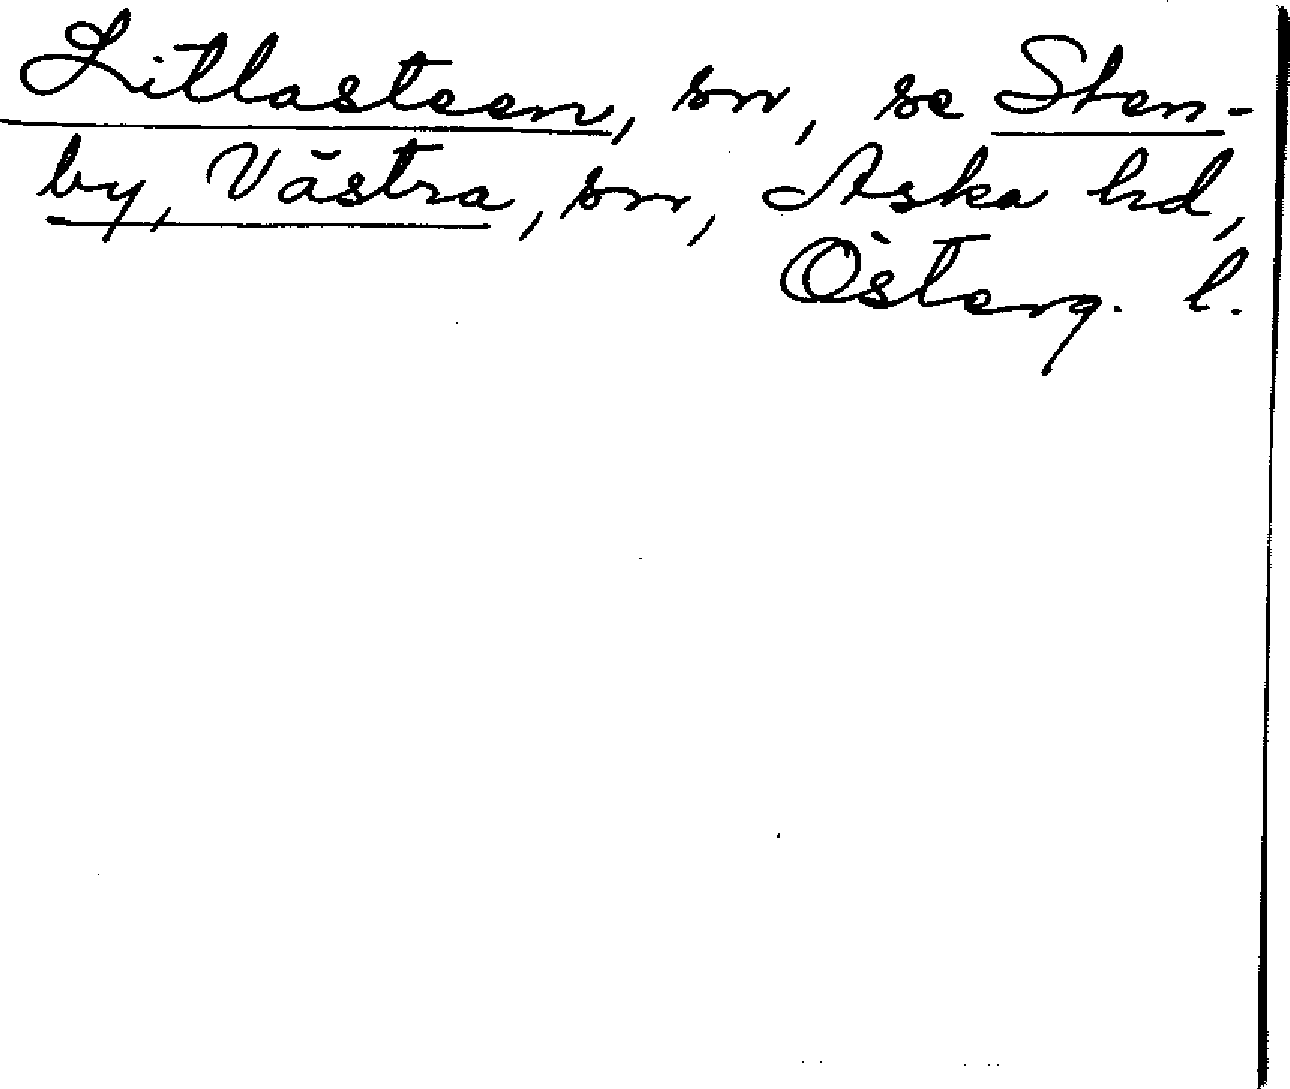 Litlasteen, sn, se Sten-
by, Västra, sn, Aska hd,
Österg. l.